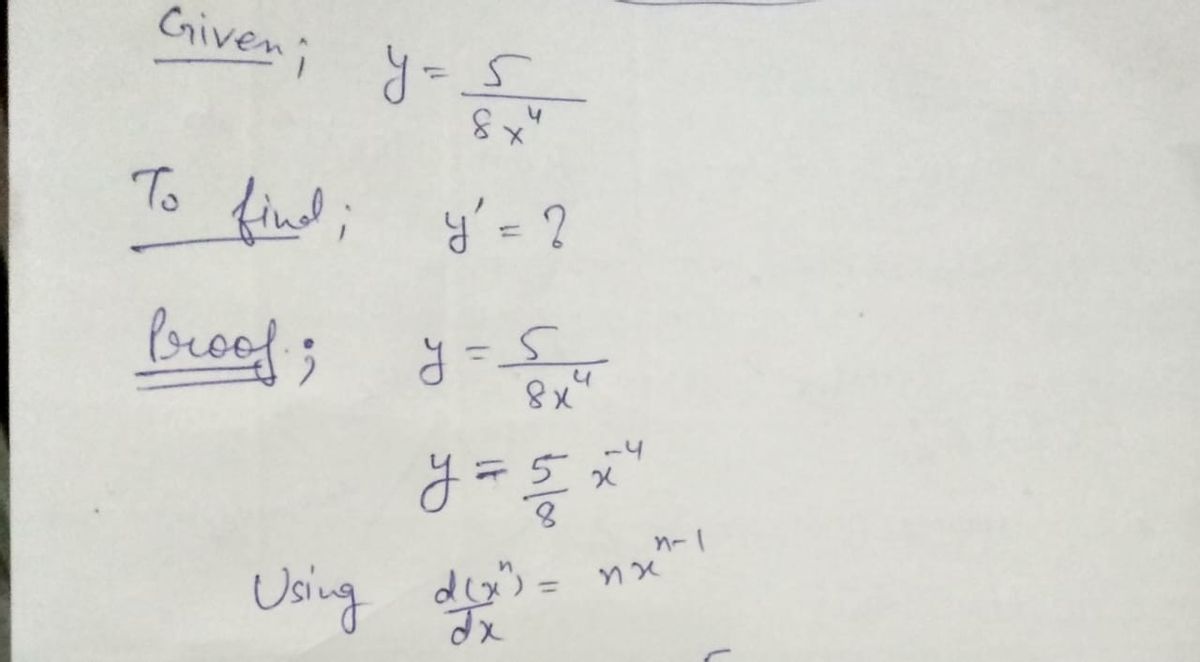 Given; y = 5/8x⁴
To find; y' = ?
Proof; y = 5/8x⁴
y = 5/8 x⁻⁴
Using d(xⁿ)/dx = nxⁿ⁻¹